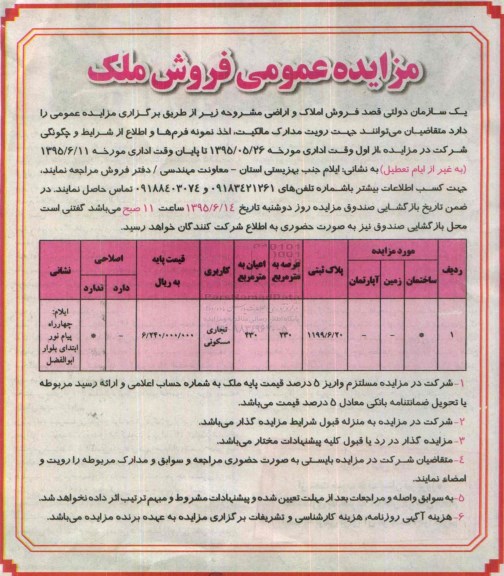 مزایده عمومی فروش ملک
یک سازمان دولتی قصد فروش املاک و اراضی مشروحه زیر از طریق برگزاری مزایده عمومی را
دارد متقاضیان می‌توانند جهت رویت مدارک مالکیت، اخذ نمونه فرم‌ها و اطلاع از شرایط و چگونگی
شرکت در مزایده ،از اول وقت اداری مورخه ۱۳۹۵/۰۵/۲۶ تا پایان وقت اداری مورخه ۱۳۹۵/۶/۱۱
(به غیر از ایام تعطیل) به نشانی: ایلام جنب بهزیستی استان - معاونت مهندسی / دفتر فروش مراجعه نمایند،
جهت کسب اطلاعات بیشتر باشماره تلفن‌های ۰۹۱۸۳۴۲۱۲۶۱ و ۰۹۱۸۸۴۰۳۰۷۴ تماس حاصل نمایند. در
ضمن تاریخ بازگشایی صندوق مزایده روز دوشنبه تاریخ ۱۳۹۵/۶/۱۴ ساعت ۱۱ صبح می‌باشد گفتنی است
محل بازگشایی صندوق نیز به صورت حضوری به اطلاع شرکت کنندگان خواهد رسید.
ردیف مورد مزایده پلاک ثبتی عرصه به مترمربع اعیان به مترمربع کاربری قیمت پایه به ریال اصلاحی نشانی
ساختمان زمین آپارتمان دارد ندارد
۱ * - - ۱۱۹۹/۶/۲۰ ۲۳۰ ۴۳۰ تجاری مسکونی ۶/۲۴۰/۰۰۰/۰۰۰ - * ایلام: چهارراه پیام نور ابتدای بلوار ابوالفضل
۱- شرکت در مزایده مستلزم واریز ۵ درصد قیمت پایه ملک به شماره حساب اعلامی و ارائه رسید مربوطه
یا تحویل ضمانتنامه بانکی معادل ۵ درصد قیمت می‌باشد.
۲- شرکت در مزایده به منزله قبول شرایط مزایده گذار می‌باشد.
۳- مزایده گذار در رد یا قبول کلیه پیشنهادات مختار می‌باشد.
۴- متقاضیان شرکت در مزایده بایستی به صورت حضوری مراجعه و سوابق و مدارک مربوطه را رویت و
امضاء نمایند.
۵- به سوابق واصله و مراجعات بعد از مهلت تعیین شده و پیشنهادات مشروط و مبهم ترتیب اثر داده نخواهد شد.
۶- هزینه آگهی روزنامه، هزینه کارشناسی و تشریفات برگزاری مزایده به عهده برنده مزایده می‌باشد.